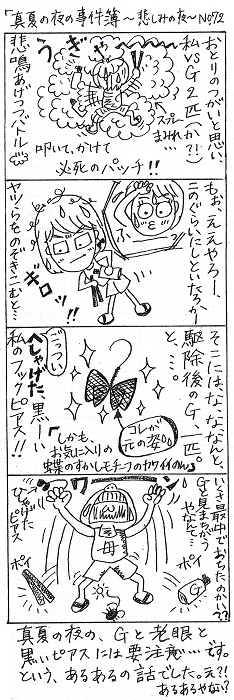 「真夏の夜の事件簿〜悲しみの夜〜No72
おとりのつがいと思い、
私VSG2匹(か?!)
悲鳴あげつつバトル
うぎゃー
スプレー
まみれ…
叩いて、かけて
必死のパッチ!!
もお、ええやろー、
このぐらいにしといたろかー
ヤツらをのぞきこむと…
ギロッ!!
そこには、な、ななんと、
駆除後のG、一匹。
と、…。
ごっつい
へしゃげた、黒ーい
私のフックピアス!!
コレが
元の姿。。
「しかも、
お気に入りの
蝶のすかしモチーフのカワイイのん」
いくさ最中でおちたのかい?
Gと見まちがう
やなんて…
ワーン
ひしゃげた
ピアス
ポイ
ポイ
G
母
??
真夏の夜の、Gと老眼と
黒いピアスには要注意…です。
という、あるあるの話でした。え?!
あるあるやない?